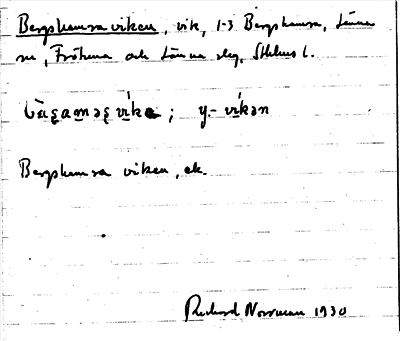 Bergshamraviken, vik, 1-3 Bergshamra, Länna
sn, Frötuna och Länna slg, Sthlms l.
y.- vikən
Bergshamra viken, ek.
Richard Norrman 1930